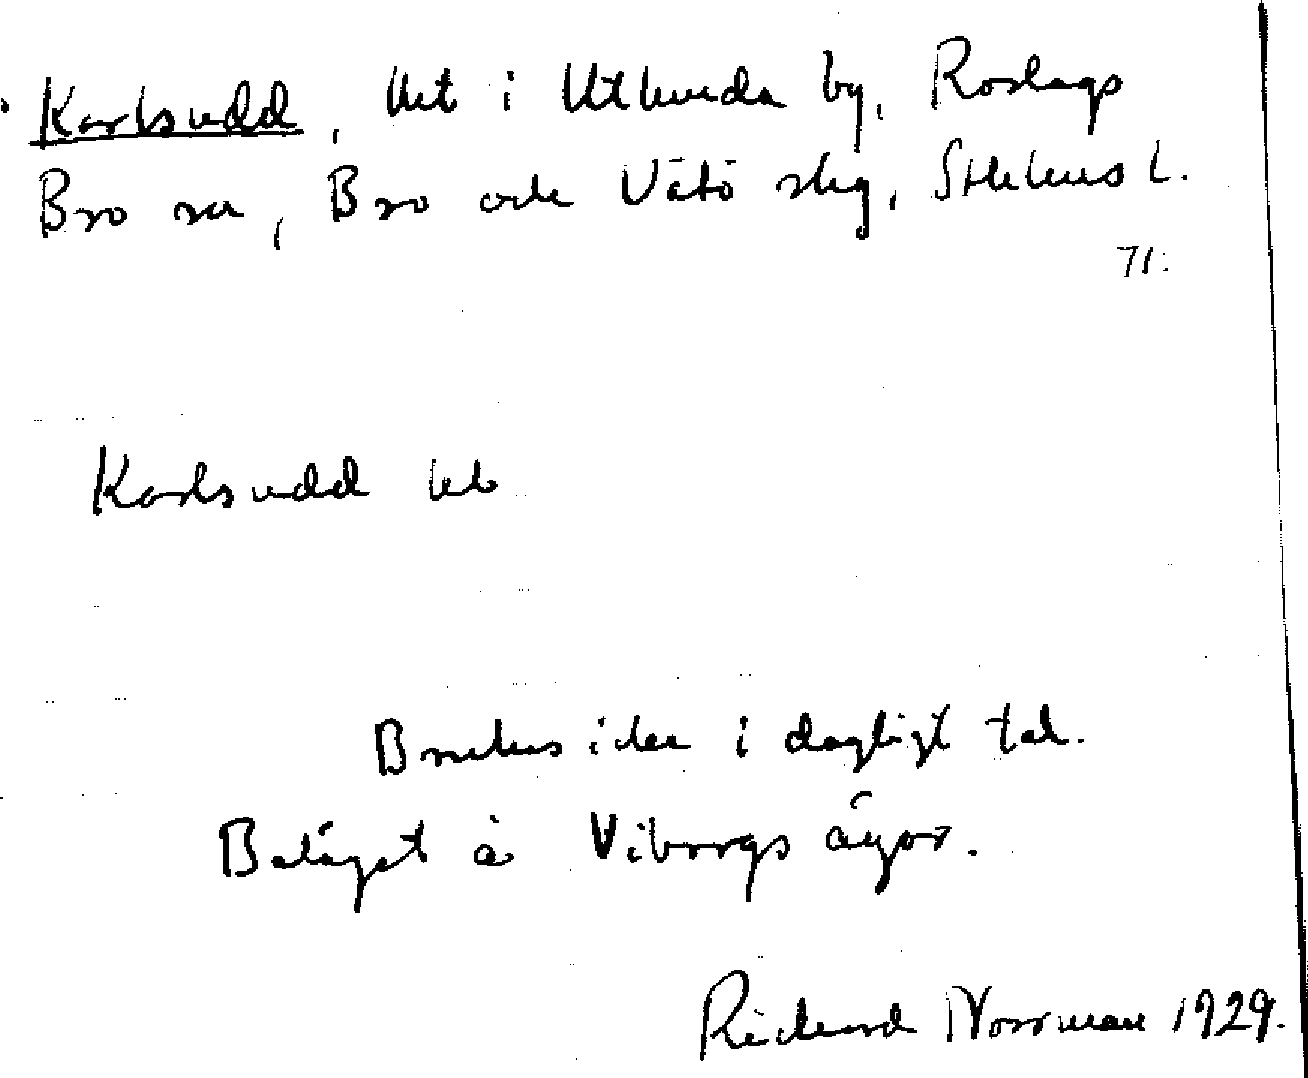 Karlsudd, lht i Utlunda by, Roslags
Bro sn, Bro och Vätö skg, Sthlms l.
71:
Karlsudd
Brukas icke i dagligt tal.
Beläget å Viborgs ägor.
Richard Norrman 1929.